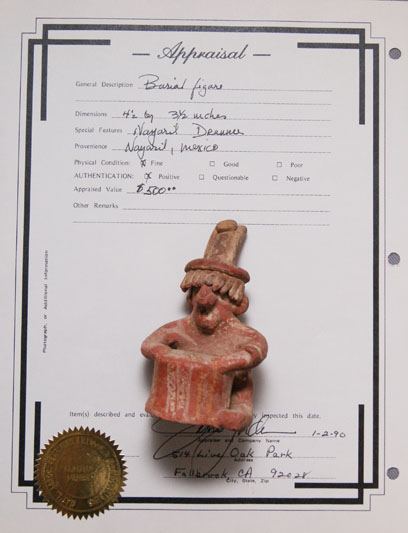 Appraisal
General Description Burial figure
Dimensions 4½ by 3½ inches
Special Features Nayarit Drummer
Provenience Nayarit, Mexico
Physical Condition: X Fine □ Good □ Poor
AUTHENTICATION: X Positive □ Questionable □ Negative
Appraised Value $500.00
Other Remarks
Photograph, or Additional Information
Item(s) described and inspected this date.
1-2-90
Appraiser and Company Name
814 Live Oak Park
Address
Fallbrook CA 92028
City, State, Zip